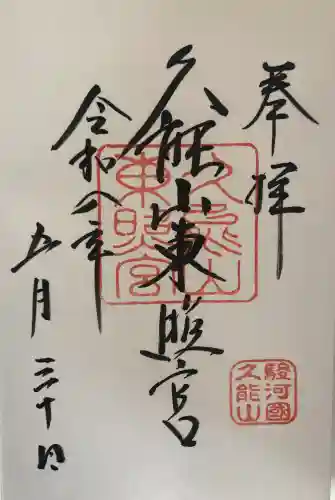 奉拝
久能山東照宮
令和八年
五月三十日
久能山
東照宮
駿河國
久能山